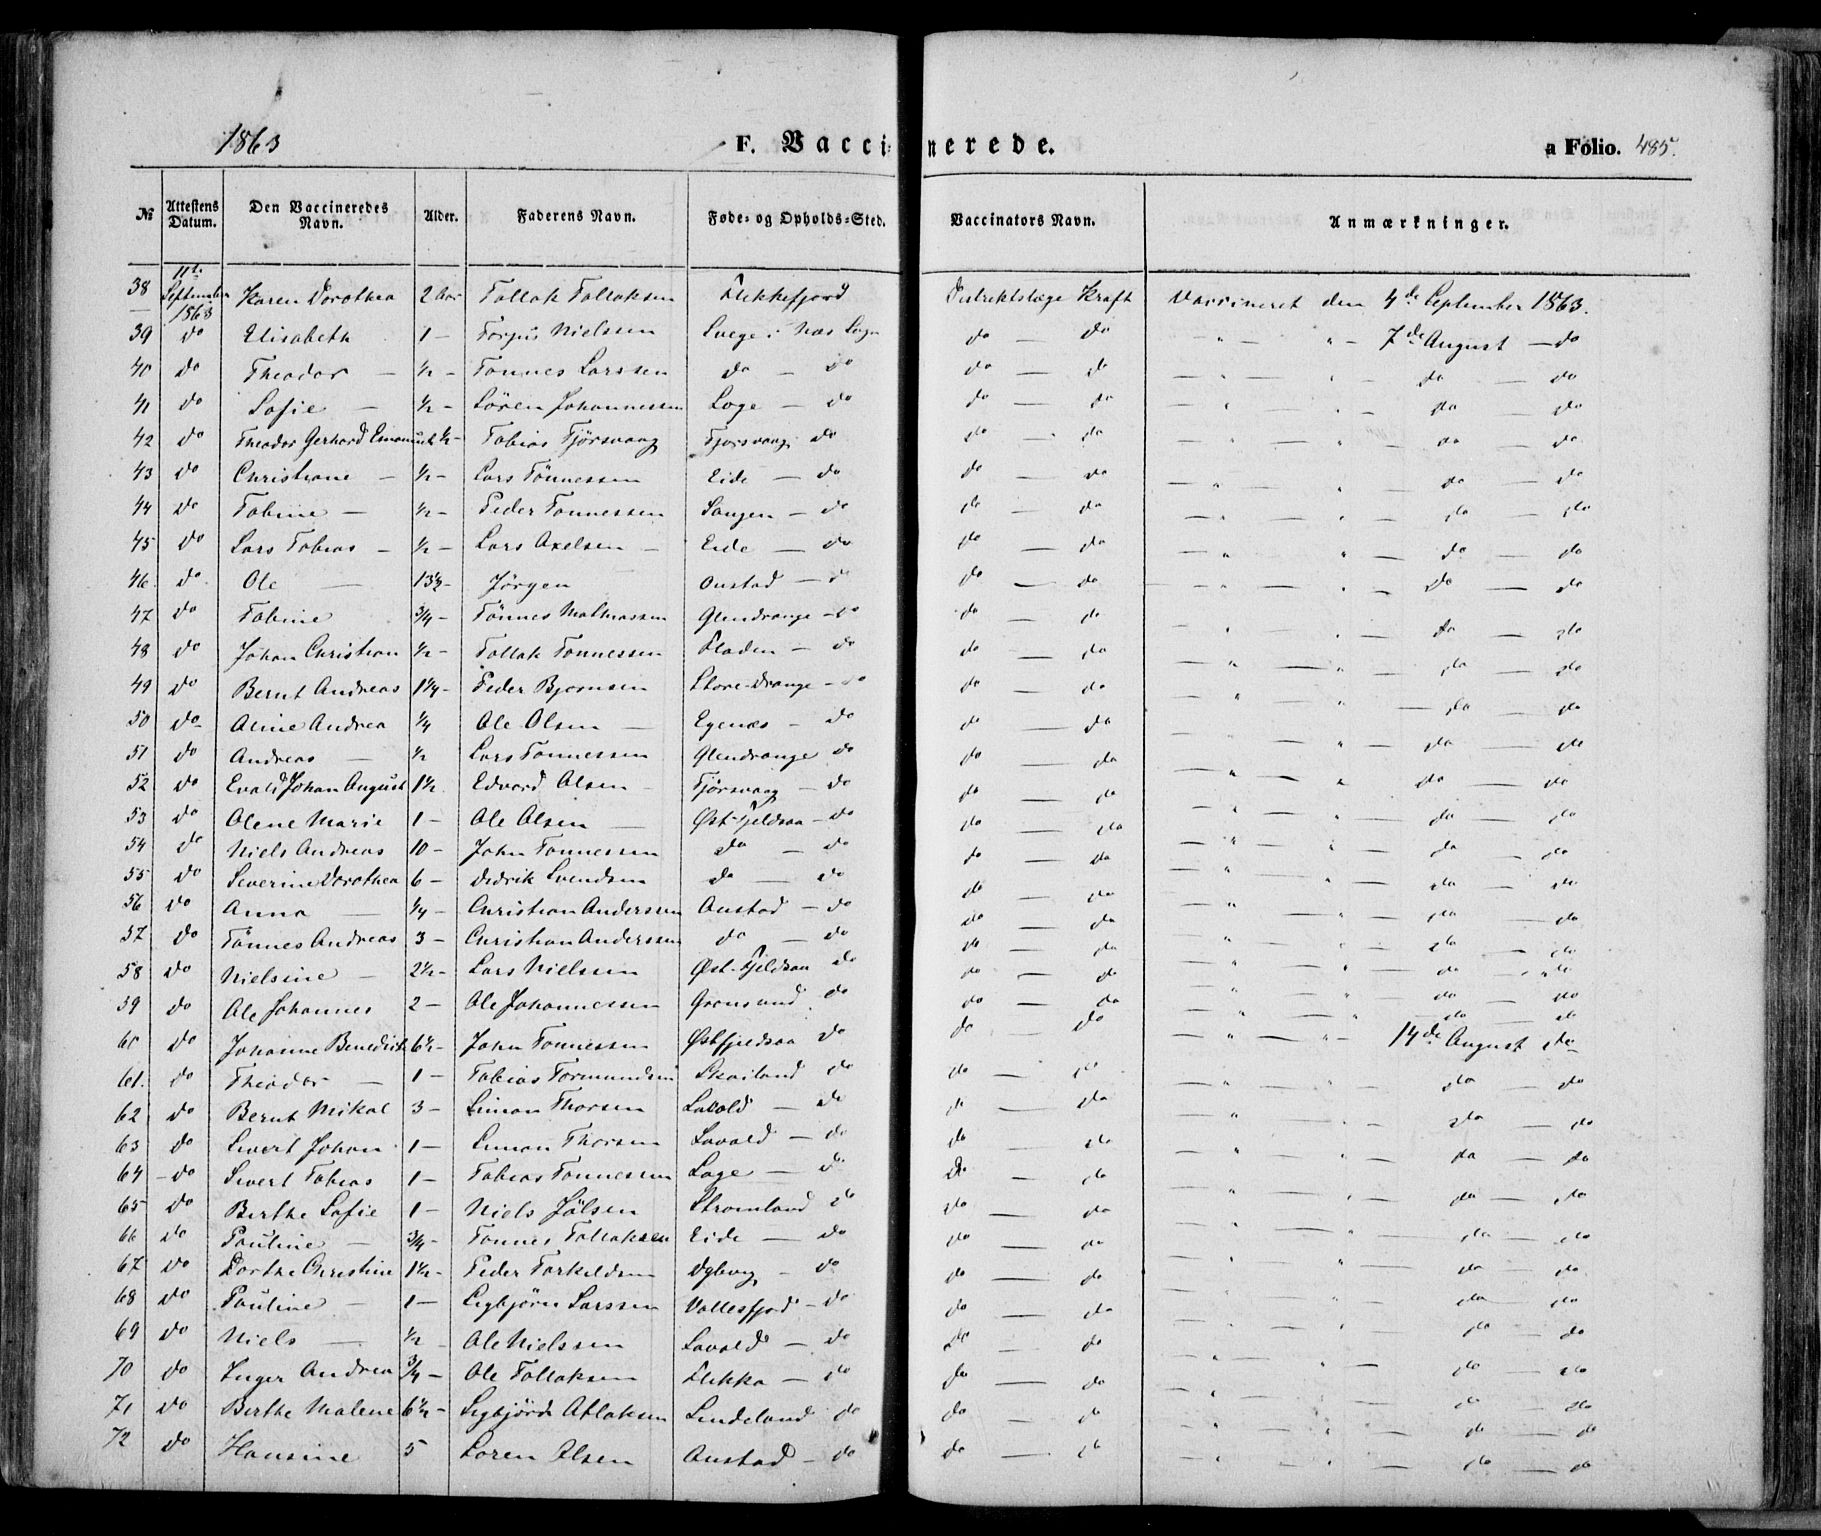 1863 F. Vaccinerede. a Folio. 485.
№ Attestens Datum. Den Vaccineredes Navn. Alder. Faderens Navn. Føde- og Opholds-Sted. Vaccinators Navn. Anmærkninger.
38 11te September 1863 Karen Dorothea 2 Aar Tollak Tollaksen Flekkefjord Distriktslæge Kraft Vaccineret den 4de September 1863.
39 do Elisabeth 1 - Torjus Nielssen Svege i Næs Sogn do — do — " — " — 7de August — do
40 do Theodor — ½ - Tønnes Larssen do — do do — do — " — " — do — do
41 do Sofie — ½ - Søren Johannessen Loge — do do — do — " — " — do — do
42 do Theodor Gerhard Emanuel ½ - Tobias Fjørsvaag Fjorsvaag do do — do — " — " — do — do
43 do Christiane — ½ - Lars Tönnessen Eide — do do — do — " — " — do — do
44 do Tobine — ½ - Peder Tonnessen Laugen — do do — do — " — " — do — do
45 do Lars Tobias — ½ - Lars Axelsen — Eide — do do — do — " — " — do — do
46. do. Ole — 13½ - Jörgen Austad — do do — do — " — " — do — do
47 do Tobine ¾ - Tönnes Mathiassen Glendrange — do do — do — " — " — do — do
48 do Johan Christian ½ - Tollak Tonnessen Fladen — do do — do — " — " — do — do
49 do Bernt Andreas 1¼ - Peder Bjornsen Store-Drange — do do — do — " — " — do — do
50 do Aline Andrea ¼ Ole Olsen — Egenæs — do do — do — " — " — do — do
51 do Andreas — ½ Lars Tonnessen Glendrange do do — do — " — " — do — do
52 do Evald Johan August 1½ Edvard Olsen — Fjørsvaag — do do — do — " — " — do — do
53 do Olene Marie 1 - Ole Olsen — Øst-Fjeldsaa — do do — do — " — " — do — do
54 do Niels Andreas 10 - John Tonnessen do — do do — do — " — " — do — do
55 do Severine Dorothea 6 - Didrik Svendsen do — do do — do — " — " — do — do
56 do Anna — ¼ - Christian Anderssen Austad — do do — do — " — " — do — do
57 do Tönnes Andreas 3 - Christian Anderssen do — do do — do — " — " — do — do
58 do Nielsine — 2½ - Lars Nielssen Øst-Fjeldsaa do do — do — " — " — do — do
59 do Ole Johannes 2 - Ole Johannessen Grønsund do do — do — " — " — do — do
60 do Johanne Benedict 6½ - John Tonnessen Østfjeldsaa do do — do — " — " — 14de August do
61. do Theodor — 1 - Tobias Tormundsen Skailand do do — do — " — " — do — do
62 do Bernt Mikal 3 - Simon Thorsen Lavold — do do — do — " — " — do — do
63 do Sivert Johan 1 - Simon Thorsen Lavold — do do — do — " — " — do — do
64 do Sivert Tobias 1 - Tobias Tonnessen Loge — do do — do — " — " — do — do
65 do Birthe Sofie 1 - Niels Jölsen Stromland do do — do — " — " — do — do
66 do Pauline — ¾ - Tonnes Tollaksen Eide — do do — do — " — " — do — do
67 do Dorthe Christine 1½ - Peder Torkildsen Dybvig — do do — do — " — " — do — do
68 do Pauline — 1 — Sigbjörn Larssen Vollesfjord — do do — do — " — " — do — do
69 do Niels — ½ Ole Nielssen Lavold — do do — do — " — " — do — do
70 do Inger Andrea ¾ - Ole Tollaksen Flikka — do do — do — " — " — do — do
71 do Birthe Malene 6½ - Sigbjörn Atlaksen Lindeland do do — do — " — " — do — do
72 do Hansine 5 Soren Olsen Austad — do do — do — " — " — do — do